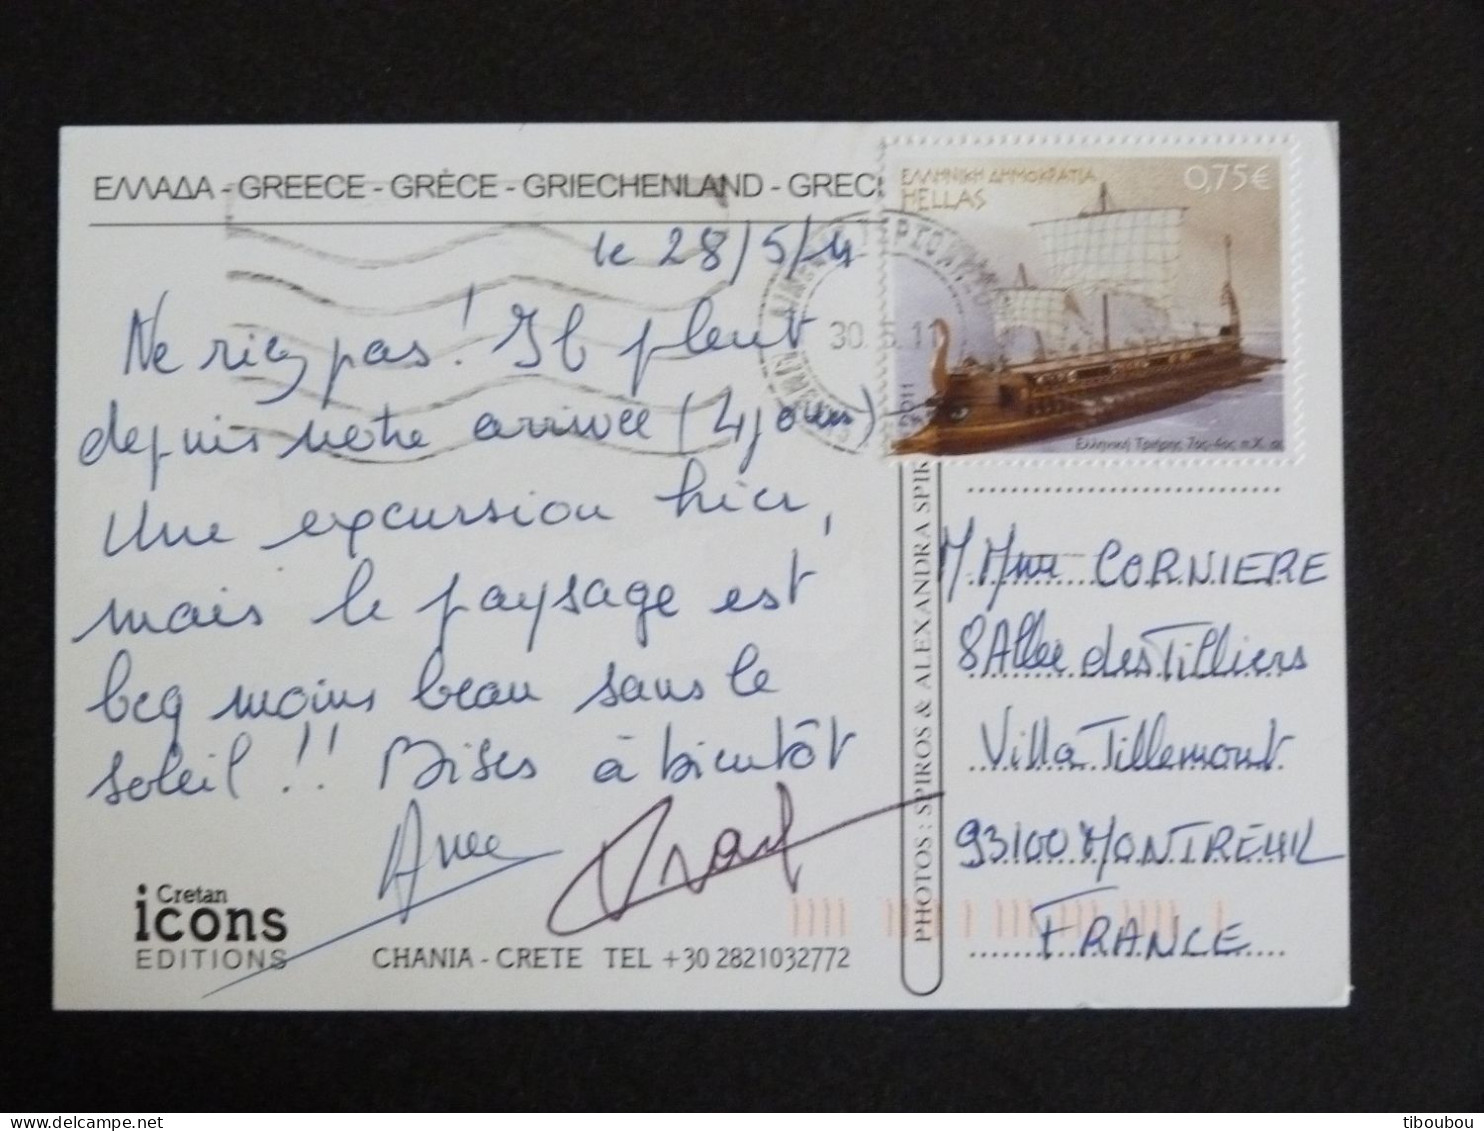 ΕΛΛΑΔΑ - GREECE - GRÈCE - GRIECHENLAND - GREC
ΕΛΛΗΝΙΚΗ ΔΗΜΟΚΡΑΤΙΑ 0,75€
HELLAS
2011
Ελληνική Τριήρης 7ος-4ος π.Χ. αι
30.5.11
le 28/5/11
Ne riez pas! Il pleut
depuis notre arrivée (4 jours)
Une excursion hier,
mais le paysage est
bcq moins beau sans le
soleil!! Bises à bientôt
Anne
M Mme CORNIERE
8 Allée des Tilliers
Villa Tillemont
93100 MONTREUIL
FRANCE
Cretan
icons
EDITIONS
CHANIA - CRETE TEL +30 2821032772
PHOTOS : SPIROS & ALEXANDRA SPIR
tiboubou